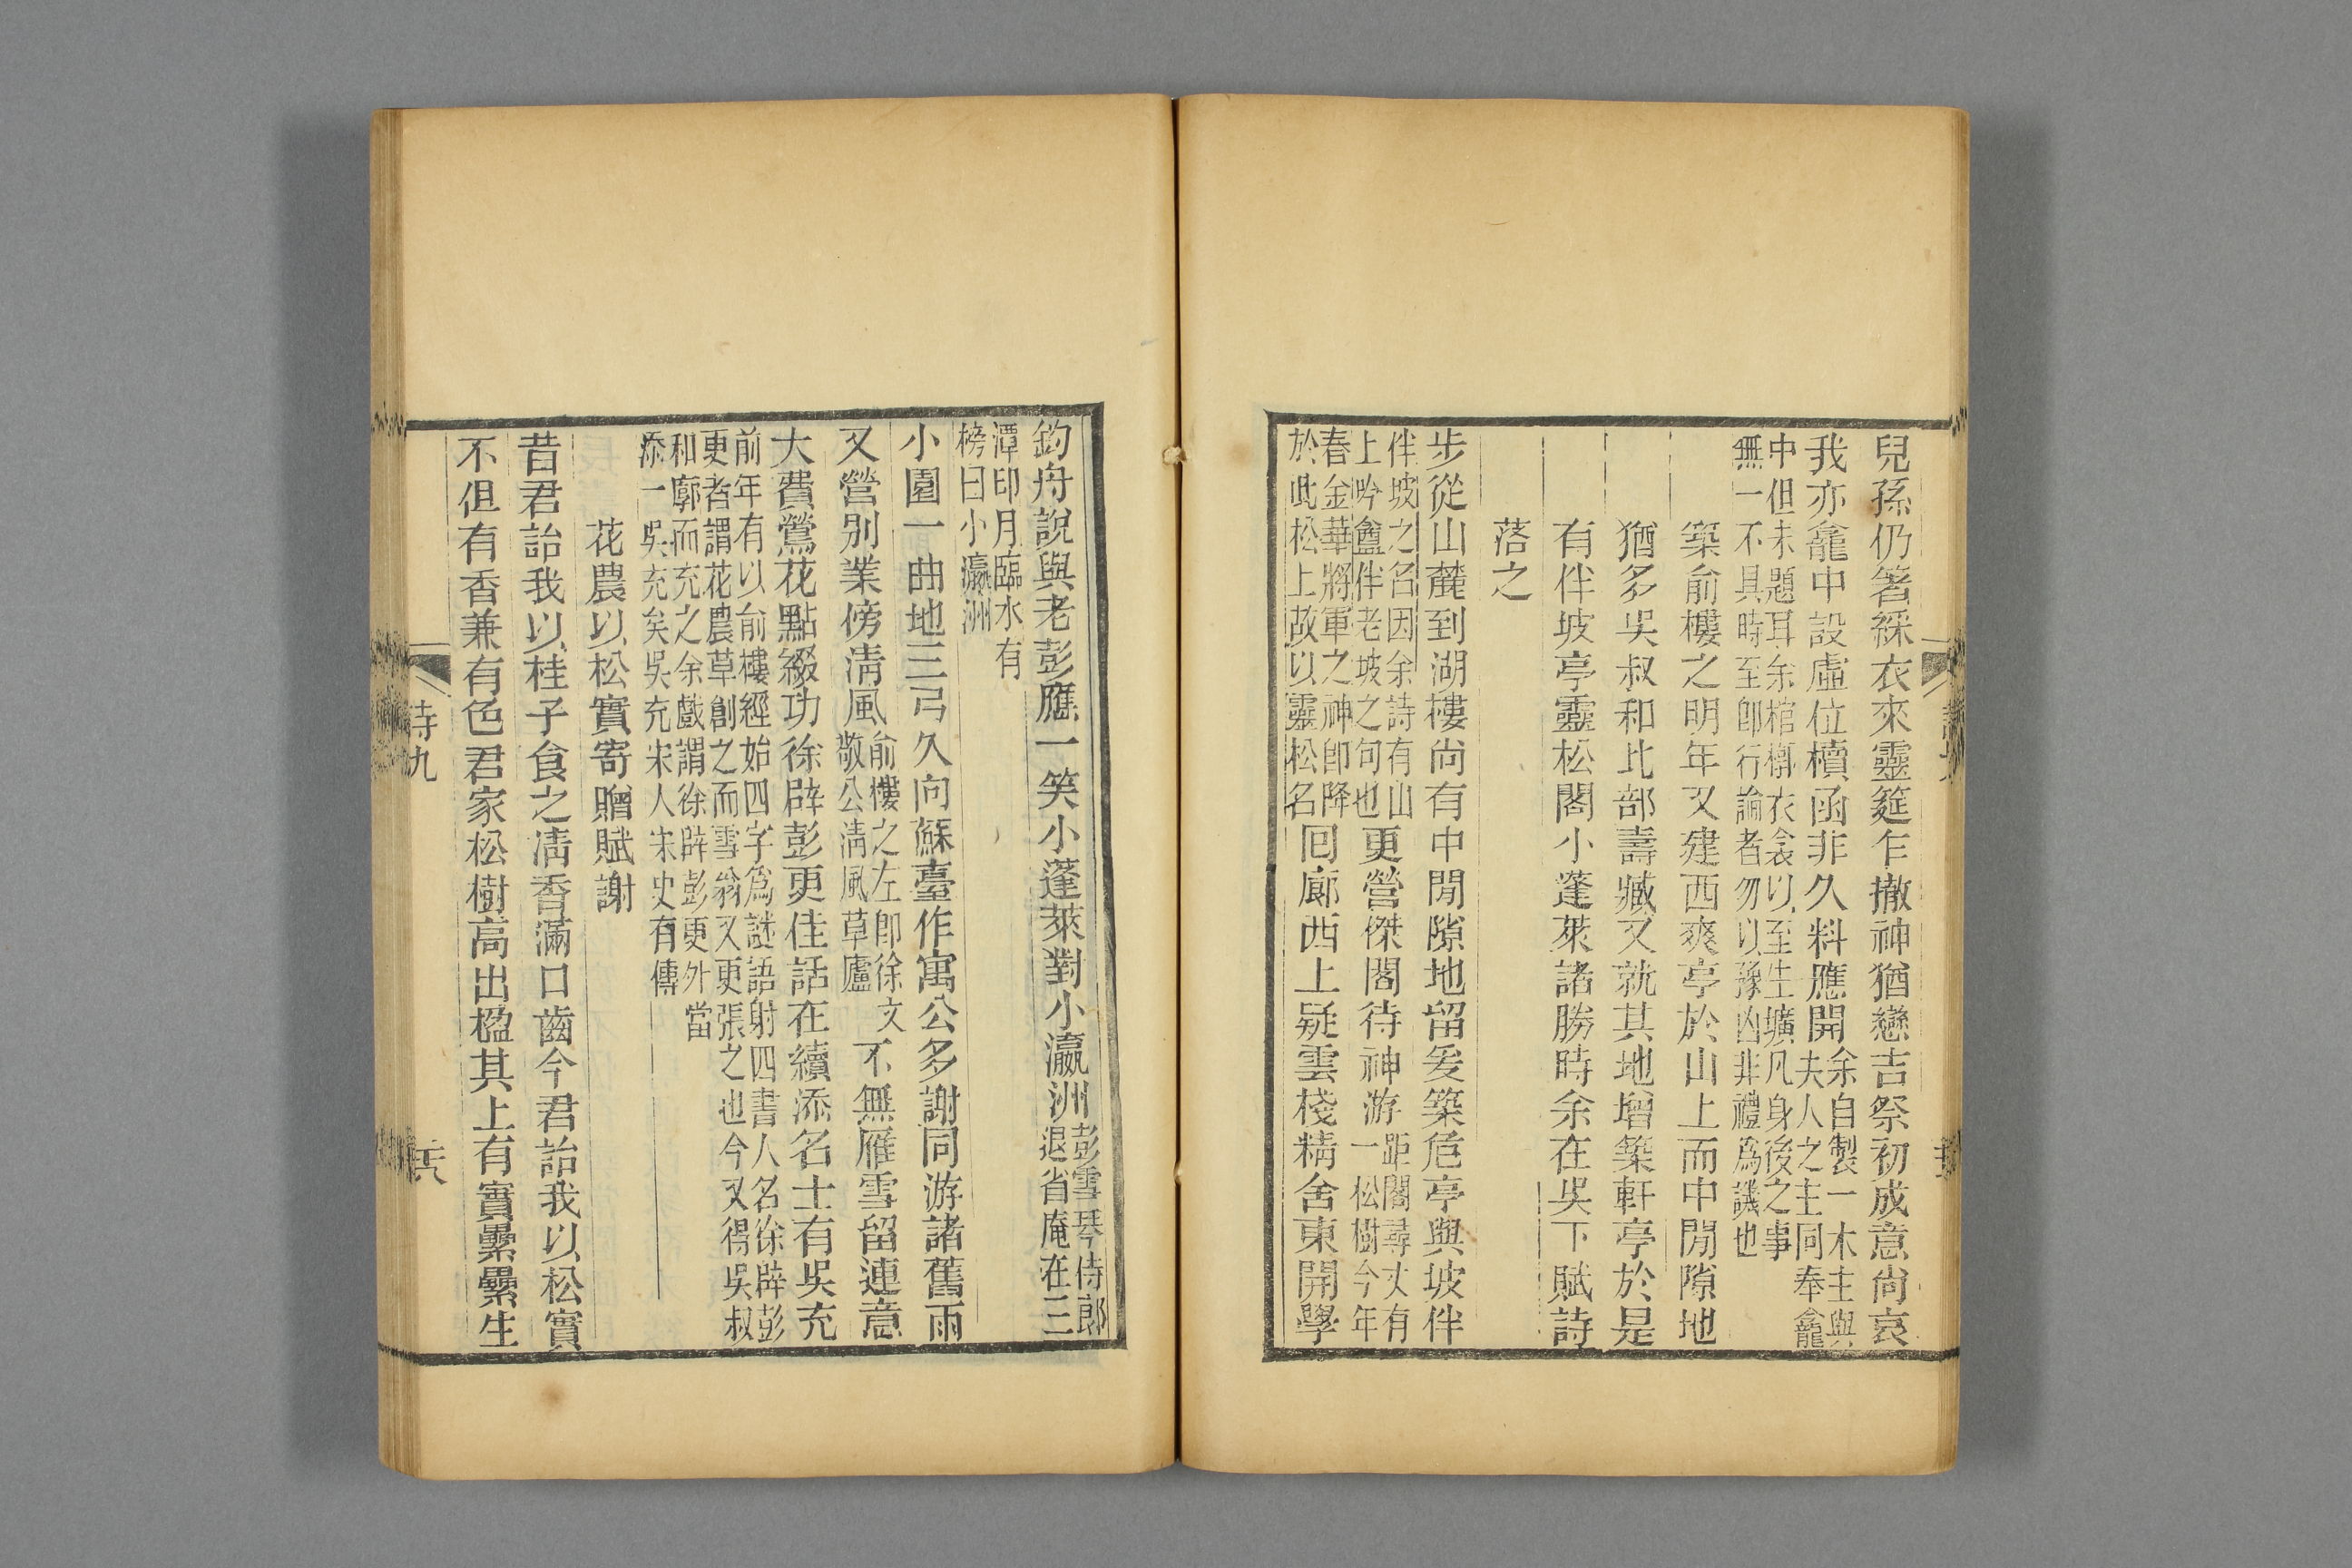 兒孫仍箸綵衣來靈筵乍撤神猶戀吉祭初成意尙哀
我亦龕中設虛位櫝函非久料應開余自製一木主與夫人之主同奉龕
中但未題耳余棺槨衣衾以至生壙凡身後之事無一不具時至卽行論者勿以豫凶非禮爲譏也
築俞樓之明年又建西爽亭於山上而中閒隙地
猶多吳叔和比部壽臧又就其地增築軒亭於是
有伴坡亭靈松閣小蓬萊諸勝時余在吳下賦詩
落之
步從山麓到湖樓尙有中閒隙地留爰築危亭與坡伴
伴坡之名因余詩有山上吟盦伴老坡之句也更營傑閣待神游距閣尋丈有一松樹今年
春金華將軍之神卽降於此松上故以靈松名回廊西上疑雲棧精舍東開學
釣舟說與老彭應一笑小蓬萊對小瀛洲彭雪琴侍郎退省庵在三
潭印月臨水有榜曰小瀛洲
小園一曲地三弓久向蘇臺作寓公多謝同游諸舊雨
又營別業傍淸風俞樓之左卽徐文敬公淸風草廬不無雁雪留連意
大費鶯花點綴功徐辟彭更佳話在續添名士有吳充
前年有以俞樓經始四字爲謎語射四書人名徐辟彭更者謂花農草創之而雪翁又更張之也今又得吳叔
和廓而充之余戲謂徐辟彭更外當添一吳充矣吳充宋人宋史有傳
花農以松實寄贈賦謝
昔君詒我以桂子食之淸香滿口齒今君詒我以松實
不但有香兼有色君家松樹高出楹其上有實纍纍生
詩九